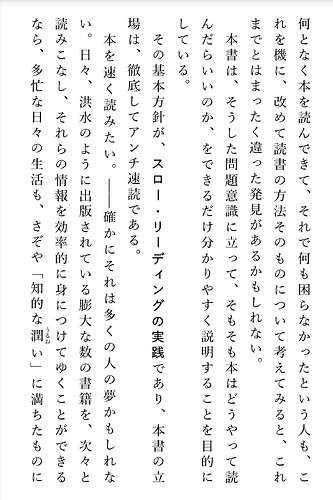 何となく本を読んできて、それで何も困らなかったという人も、こ
れを機に、改めて読書の方法そのものについて考えてみると、これ
までとはまったく違った発見があるかもしれない。
本書は、そうした問題意識に立って、そもそも本はどうやって読
んだらいいのか、をできるだけ分かりやすく説明することを目的に
している。
その基本方針が、スロー・リーディングの実践であり、本書の立
場は、徹底してアンチ速読である。
本を速く読みたい。――確かにそれは多くの人の夢かもしれな
い。日々、洪水のように出版されている膨大な数の書籍を、次々と
読みこなし、それらの情報を効率的に身につけてゆくことができる
なら、多忙な日々の生活も、さぞや「知的な潤うるおい」に満ちたものに